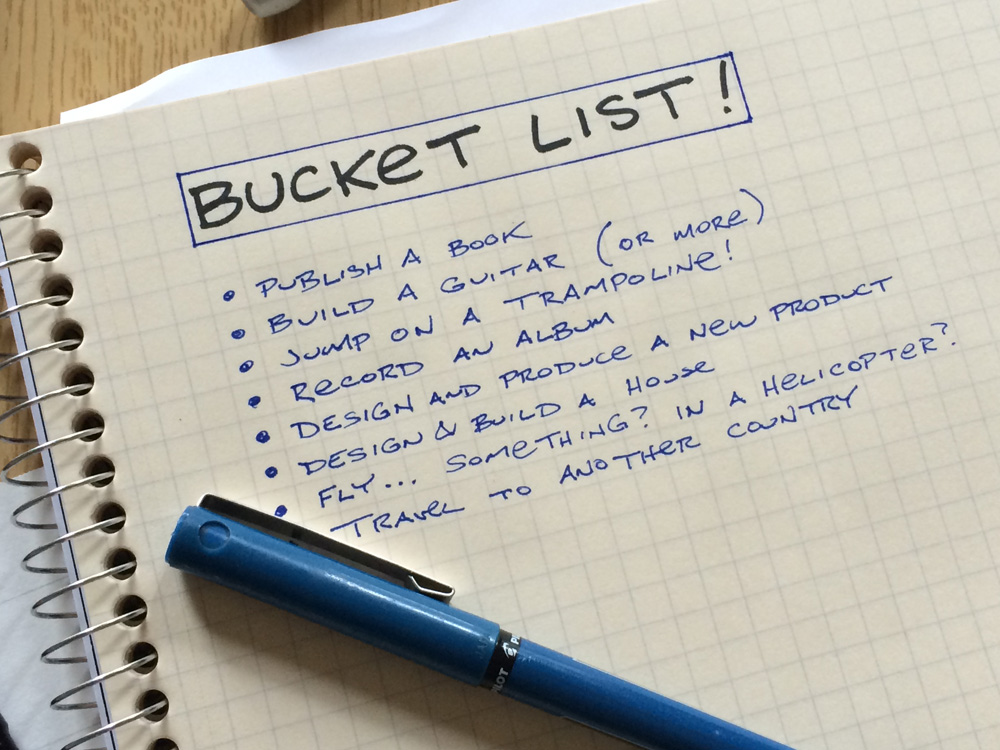 BUCKET LIST!
• PUBLISH A BOOK
• BUILD A GUITAR (OR MORE)
• JUMP ON A TRAMPOLINE!
• RECORD AN ALBUM
• DESIGN AND PRODUCE A NEW PRODUCT
• DESIGN & BUILD A HOUSE
• FLY... SOMETHING? IN A HELICOPTER?
TRAVEL TO ANOTHER COUNTRY
PILOT